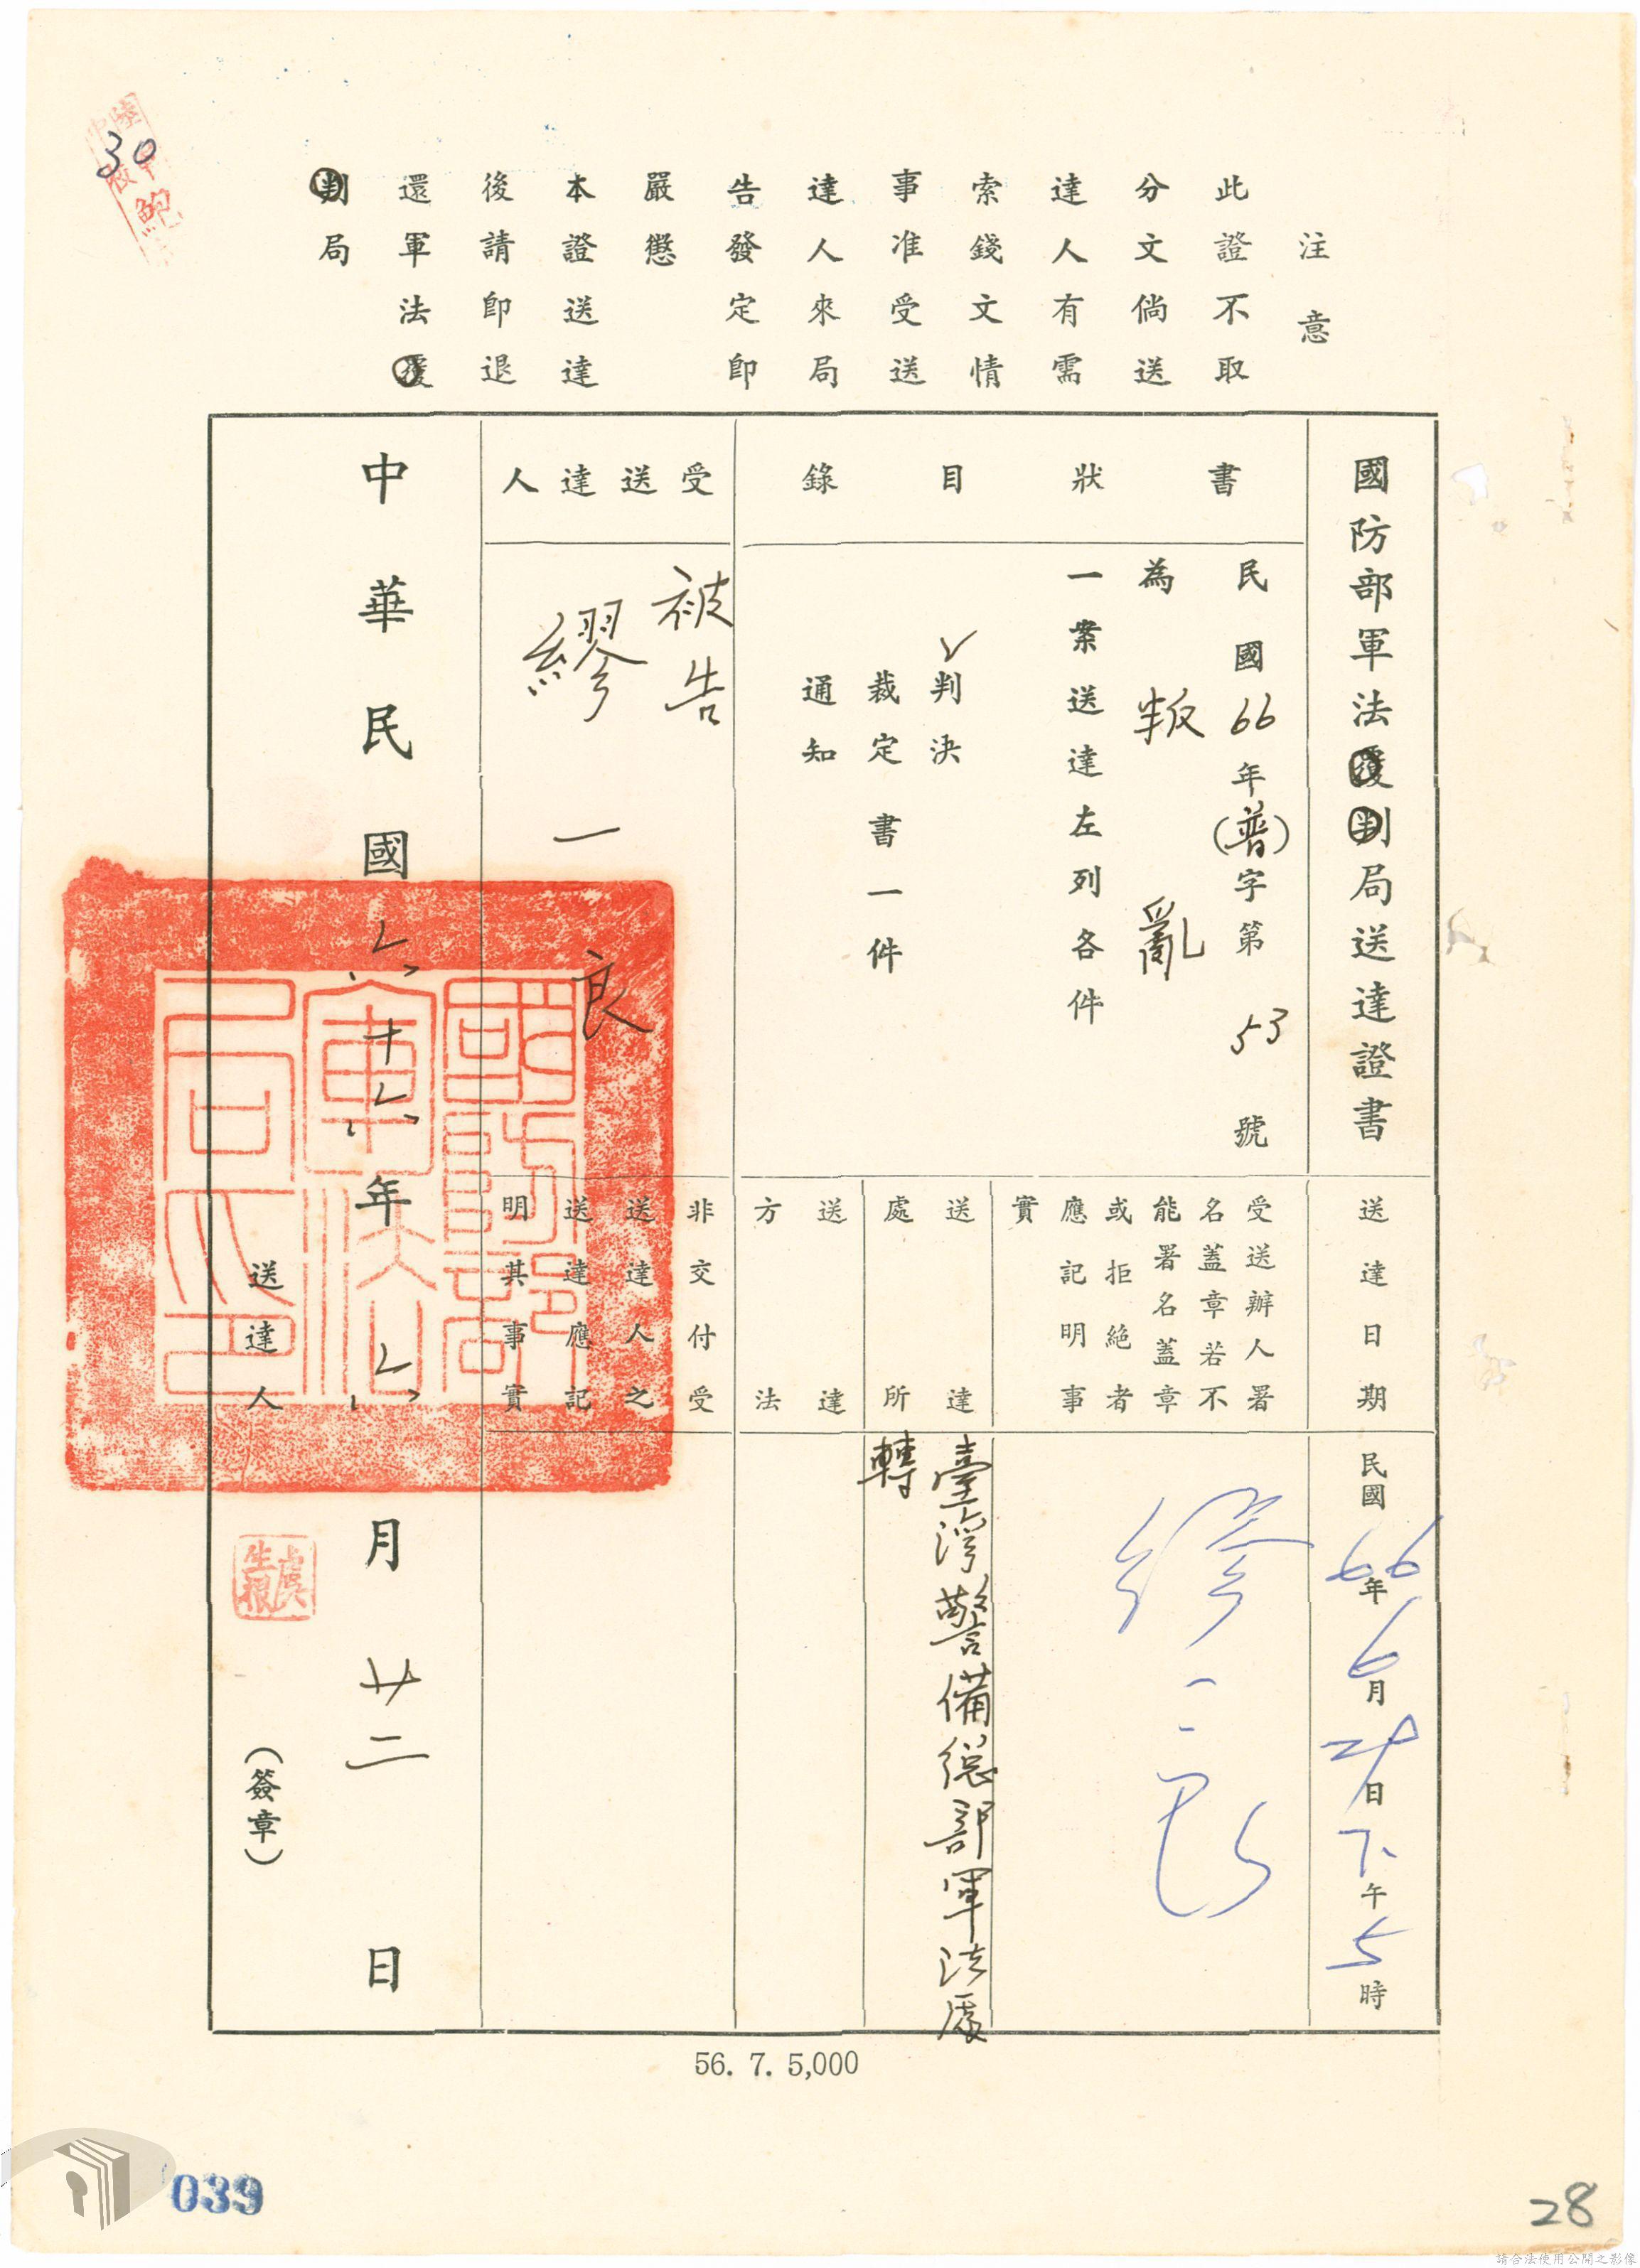 注意
此證不取
分文倘送
達人有需
索錢文情
事准受送
達人來局
告發定即
嚴懲
本證送達
後請即退
還軍法覆
判局
30
國防部軍法覆判局送達證書
書狀目錄
民國66年(普)字第53號
為叛亂
一案送達左列各件
✓判決
裁定書一件
通知
受送達人
被告
繆一良
送達日期
民國66年6月29日下午5時
受送辦人署
名蓋章若不
能署名蓋章
或拒絕者
應記明事
實
繆一良
送達
處所
臺灣警備總部軍法處
轉
送達
方法
非交付受
送達人之
送達應記
明其事實
國防部軍法局印
中華民國六十六年六月廿二日
送達人
虞生根
(簽章)
56. 7. 5,000
039
28
請合法使用公開之影像